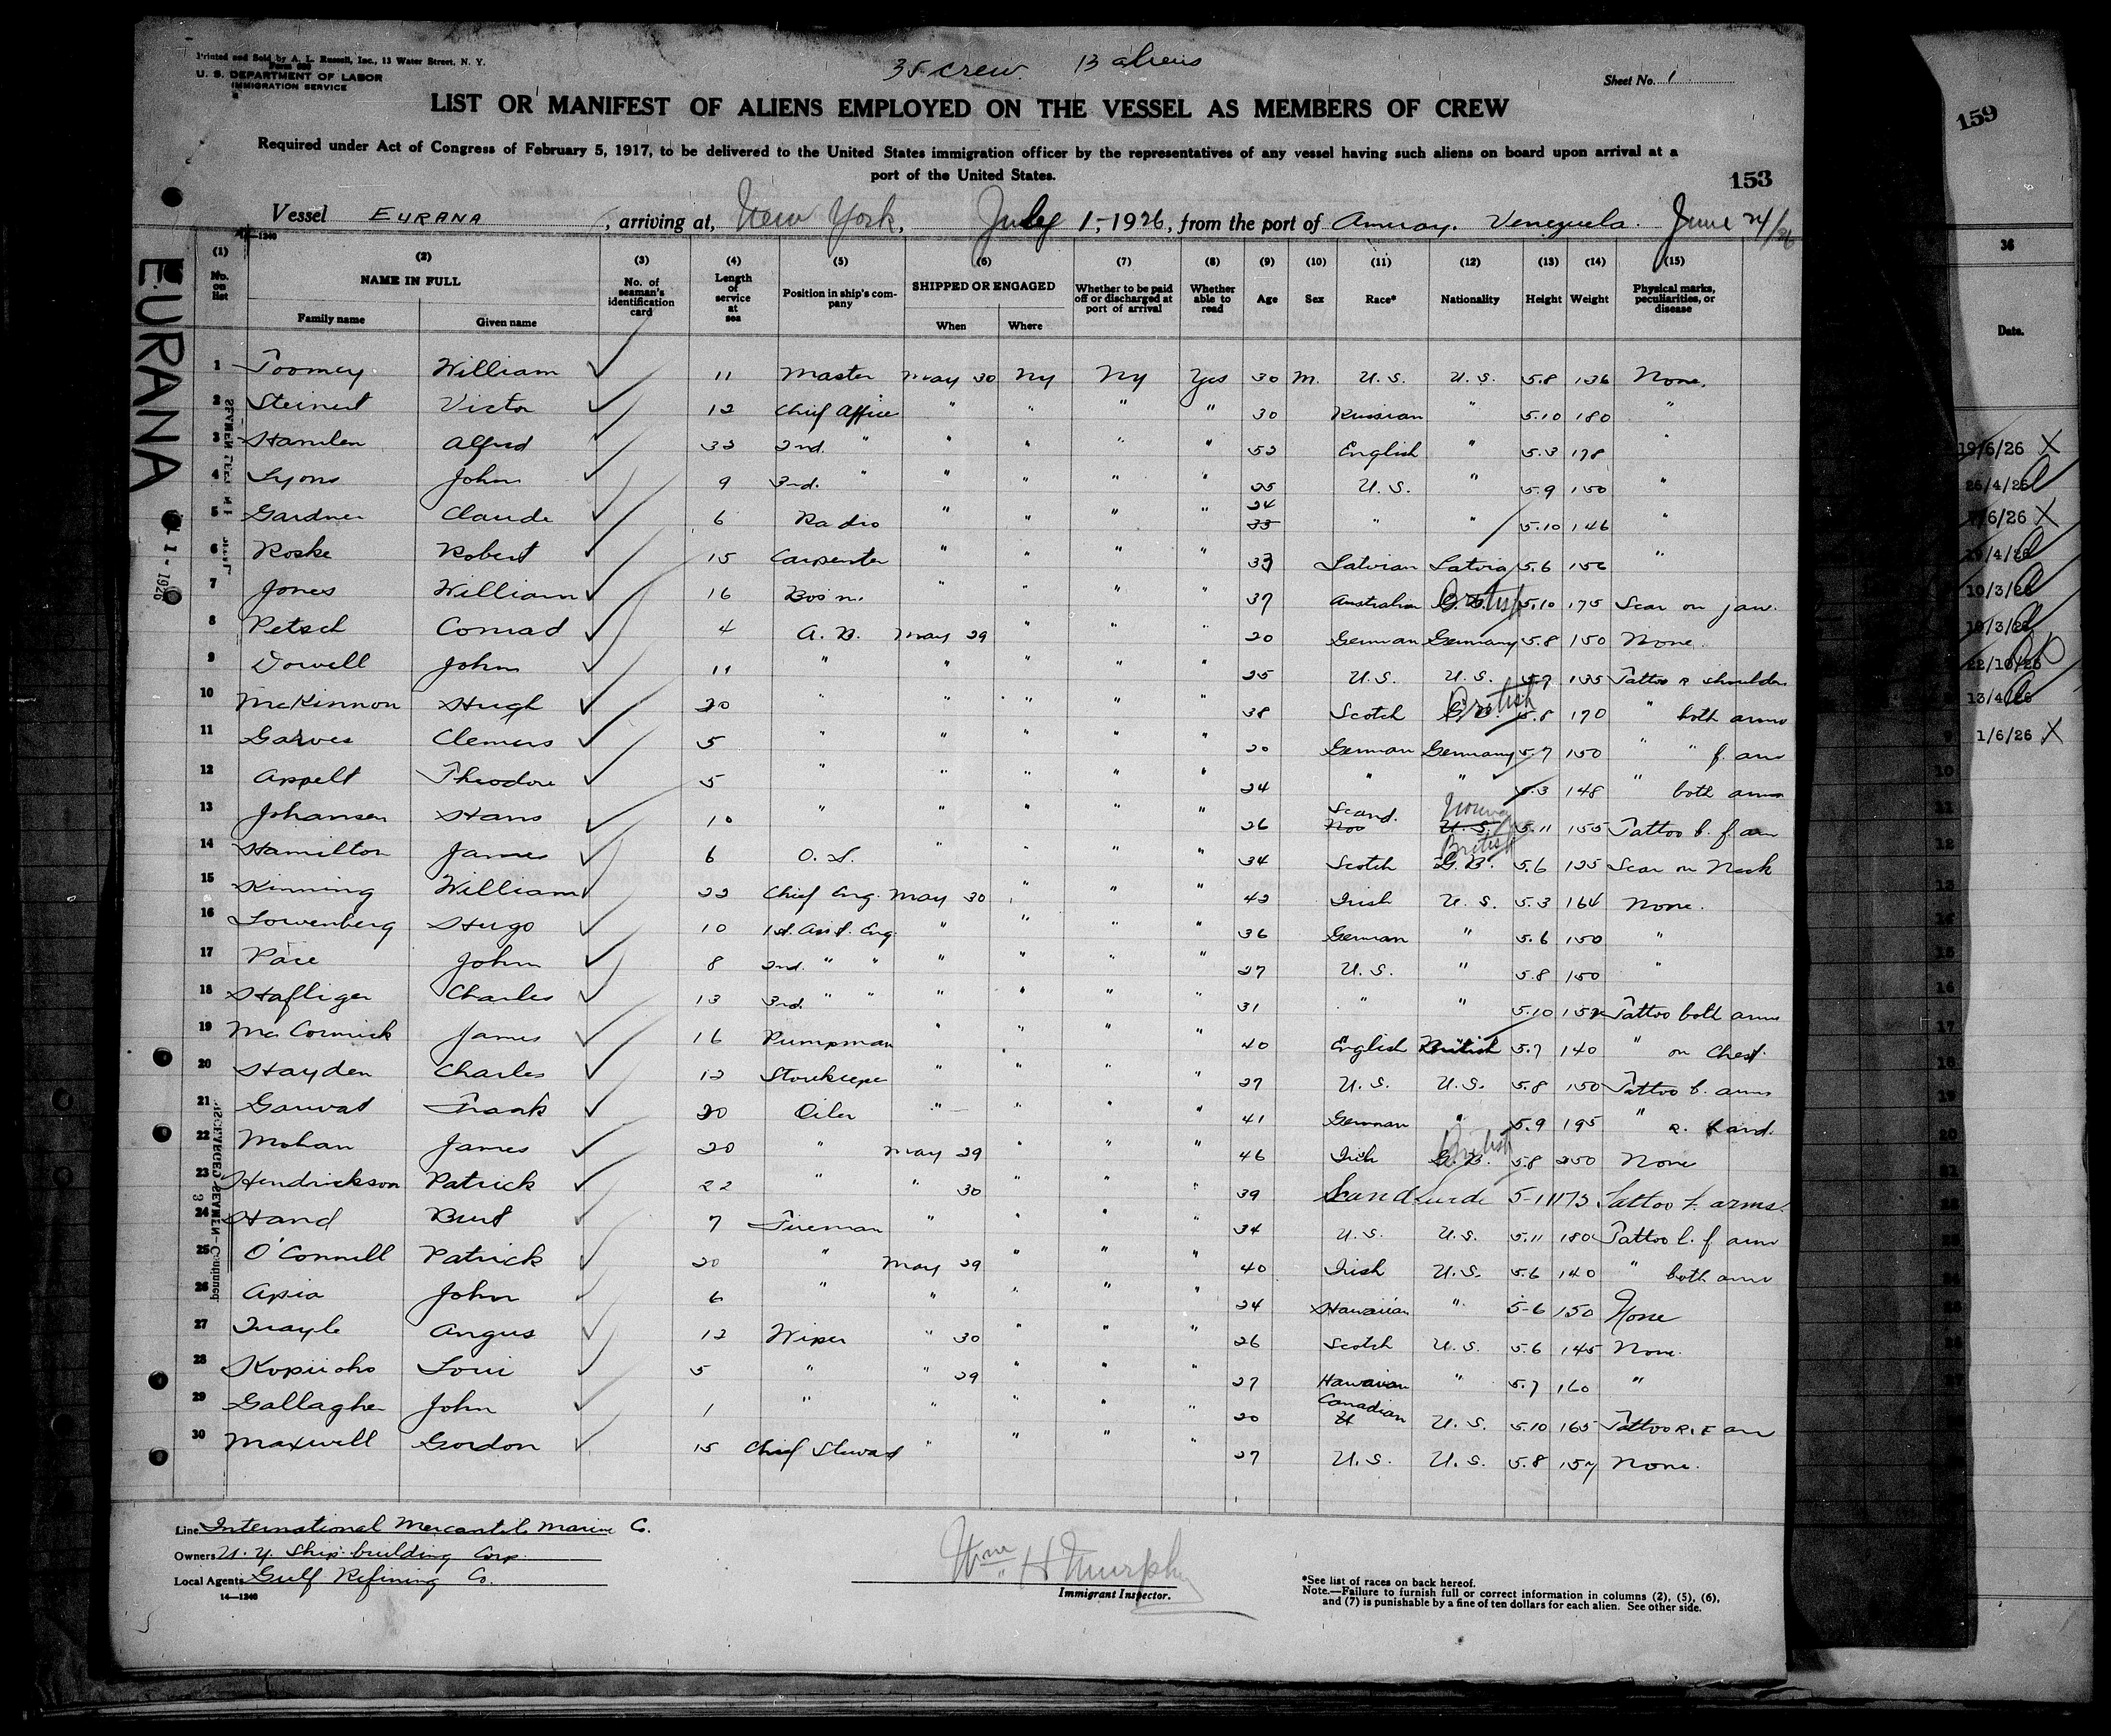 Printed and Sold by A. L. Russell, Inc., 13 Water Street, N. Y.
Form 680
U. S. DEPARTMENT OF LABOR
IMMIGRATION SERVICE
35 crew. 13 aliens
Sheet No. 1
LIST OR MANIFEST OF ALIENS EMPLOYED ON THE VESSEL AS MEMBERS OF CREW
Required under Act of Congress of February 5, 1917, to be delivered to the United States immigration officer by the representatives of any vessel having such aliens on board upon arrival at a
port of the United States.
153
Vessel EURANA, arriving at, New York, July 1, 1926, from the port of Amuay, Venezuela. June 24/26
14—1240
EURANA
(1) (2) (3) (4) (5) (6) (7) (8) (9) (10) (11) (12) (13) (14) (15)
No. on list NAME IN FULL Family name Given name No. of seaman's identification card Length of service at sea Position in ship's company SHIPPED OR ENGAGED When Where Whether to be paid off or discharged at port of arrival Whether able to read Age Sex Race* Nationality Height Weight Physical marks, peculiarities, or disease
1 Toomey William 11 Master May 30 NY NY Yes 30 M. U.S. U.S. 5.8 136 None.
2 Steinert Victor 12 Chief Officer " " " " 30 Russian " 5.10 180 "
3 Hamlen Alfred 32 2nd. " " " " " 52 English " 5.3 178 "
4 Lyons John 9 3rd. " " " " " 25 U.S. " 5.9 150 "
5 Gardner Claude 6 Radio " " " " 24 33 " " 5.10 146 "
6 Roske Robert 15 Carpenter " " " " 33 Latvian Latvia 5.6 156 "
7 Jones William 16 Bos'n. " " " " 37 Australian G.B. British 5.10 175 Scar on jaw.
8 Petsch Conrad 4 A.B. May 29 " " " 20 German Germany 5.8 150 None.
9 Dowell John 11 " " " " " 25 U.S. U.S. 5.7 135 Tattoo R shoulder
10 McKinnon Hugh 20 " " " " " 38 Scotch G.B. British 5.8 170 " both arms
11 Garves Clemens 5 " " " " " 20 German Germany 5.7 150 " " f. arm
12 Appelt Theodore 5 " " " " " 24 " " 5.3 148 " both arms
13 Johansen Hans 10 " " " " " 26 Scand. Nor U.S. 5.11 155 Tattoo l. f. arm
14 Hamilton James 6 O.S. " " " " 34 Scotch G.B. British 5.6 135 Scar on Neck
15 Kinning William 22 Chief Eng. May 30 " " " 42 Irish U.S. 5.3 164 None.
16 Lowenberg Hugo 10 1st. Asst. Eng. " " " " 36 German " 5.6 150 "
17 Pace John 8 2nd. " " " " " " 27 U.S. " 5.8 150 "
18 Hafliger Charles 13 3rd. " " " " " " 31 " " 5.10 152 Tattoo both arms
19 McCormick James 16 Pumpman " " " " 40 English British 5.7 140 " on Chest.
20 Hayden Charles 12 Storekeeper " " " " 27 U.S. U.S. 5.8 150 Tattoo b. arms
21 Frank 20 Oiler " " " " 41 German " 5.9 195 " R. hand.
22 Mohan James 20 " May 29 " " " 46 Irish G.B. British 5.8 250 None
23 Hendrickson Patrick 22 " " 30 " " " 39 Scand Swede 5-11 173 Tattoo f. arms.
24 Hand Burt 7 Fireman " " " " 34 U.S. U.S. 5.11 180 Tattoo l. f. arm
25 O'Connell Patrick 20 " May 29 " " " 40 Irish U.S. 5.6 140 " both arms
26 Apia John 6 " " " " " 24 Hawaiian " 5-6 150 None
27 Quayle Angus 12 Wiper " 30 " " " 26 Scotch U.S. 5.6 145 None.
28 Loui 5 " " 29 " " " 27 Hawaiian " 5.7 160 "
29 Gallagher John 1 " " " " " 20 Canadian U.S. 5.10 165 Tattoo R. F arm
30 Maxwell Gordon 15 Chief Steward " " " " 27 U.S. U.S. 5.8 157 None.
Line International Mercantile Marine Co.
Owners N.Y. Ship building Corp.
Local Agents Gulf Refining Co.
14—1240
Wm. H Murphy
Immigrant Inspector.
*See list of races on back hereof.
Note.—Failure to furnish full or correct information in columns (2), (5), (6),
and (7) is punishable by a fine of ten dollars for each alien. See other side.
159
36
Date.
19/6/26 X
26/4/26
1/6/26 X
19/4/26
10/3/26
10/3/26
22/10/26
13/4/26
1/6/26 X